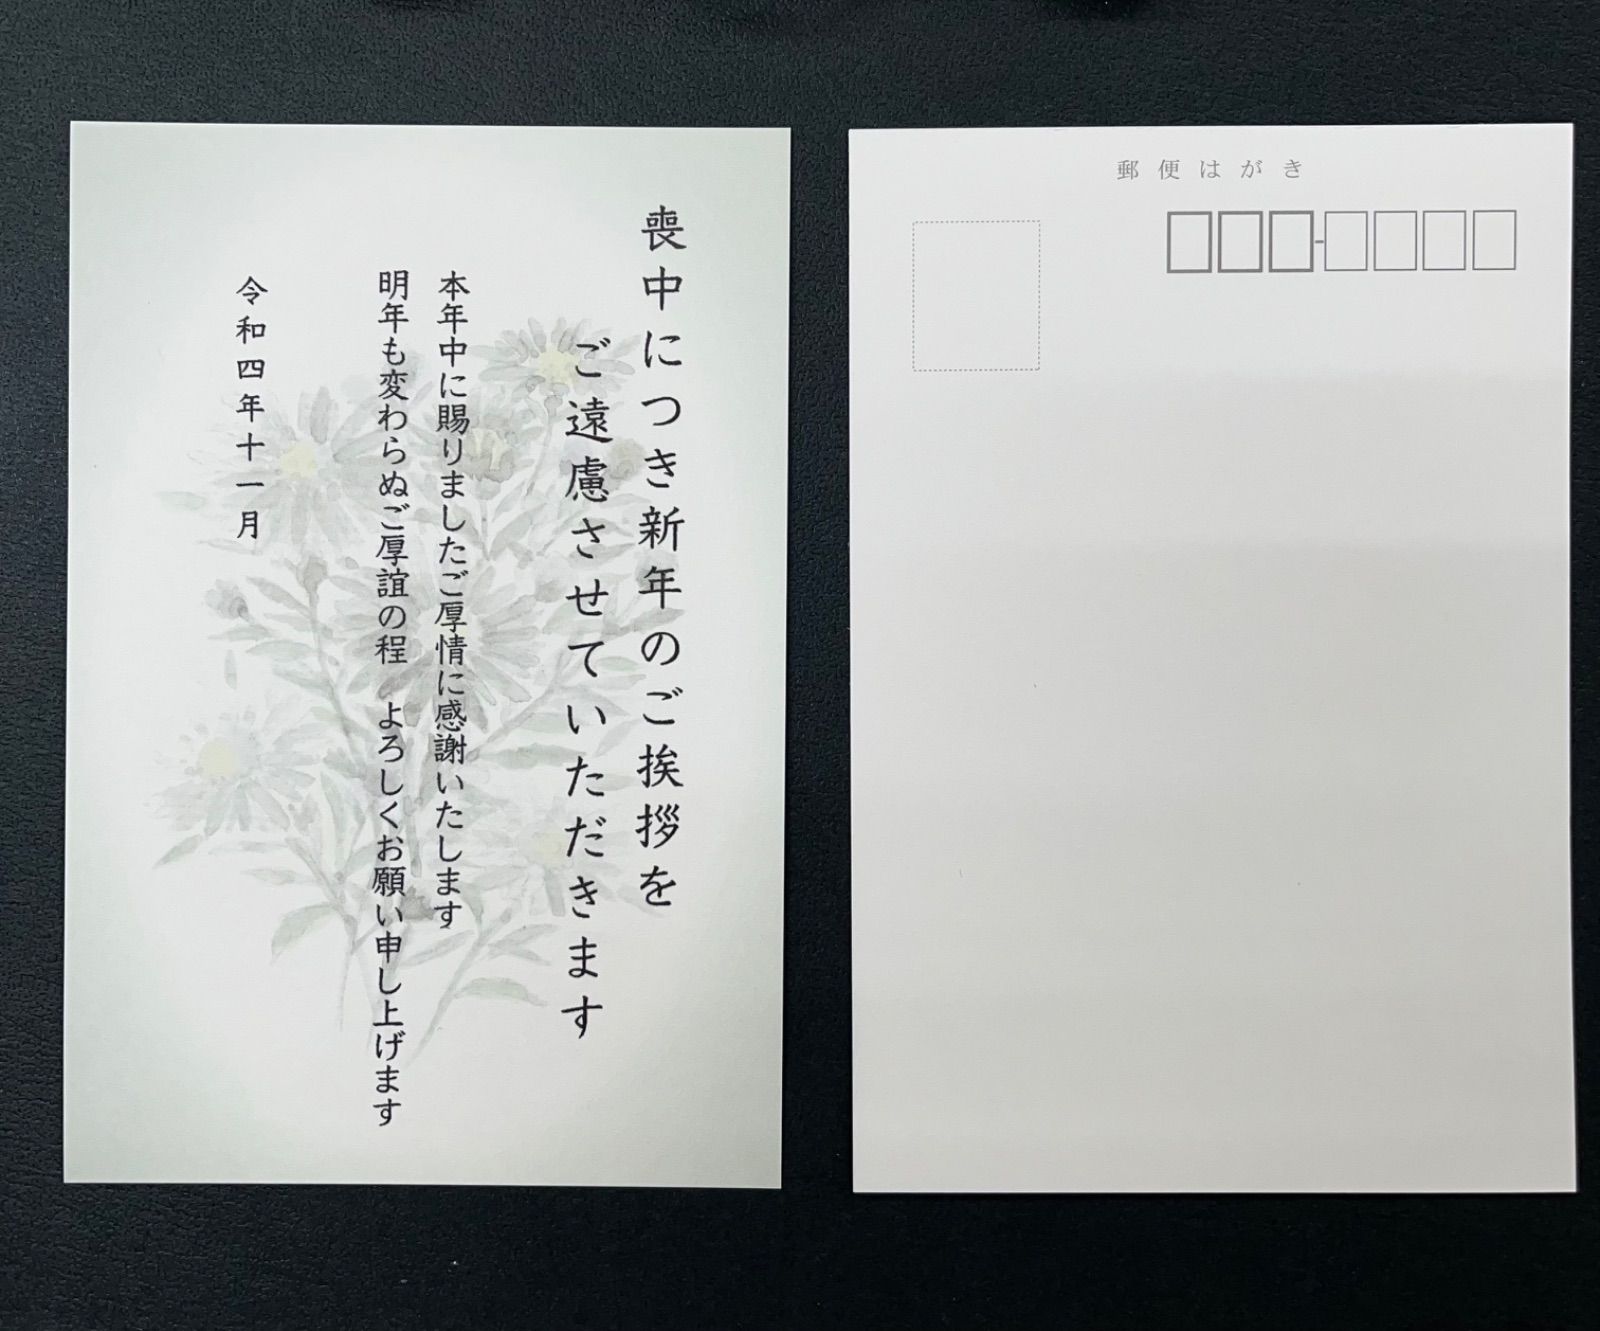 喪中につき新年のご挨拶を
ご遠慮させていただきます
本年中に賜りましたご厚情に感謝いたします
明年も変わらぬご厚誼の程 よろしくお願い申し上げます
令和四年十一月
郵便はがき